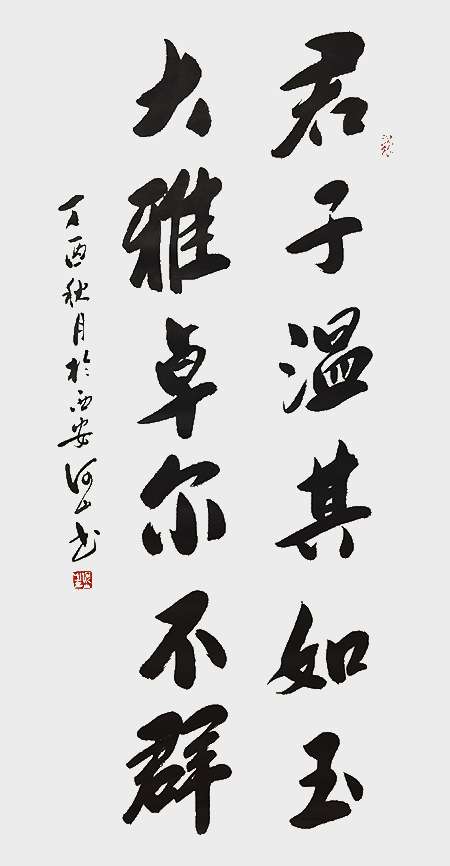 君子温其如玉
大雅卓尔不群
丁酉秋月於西安河山书